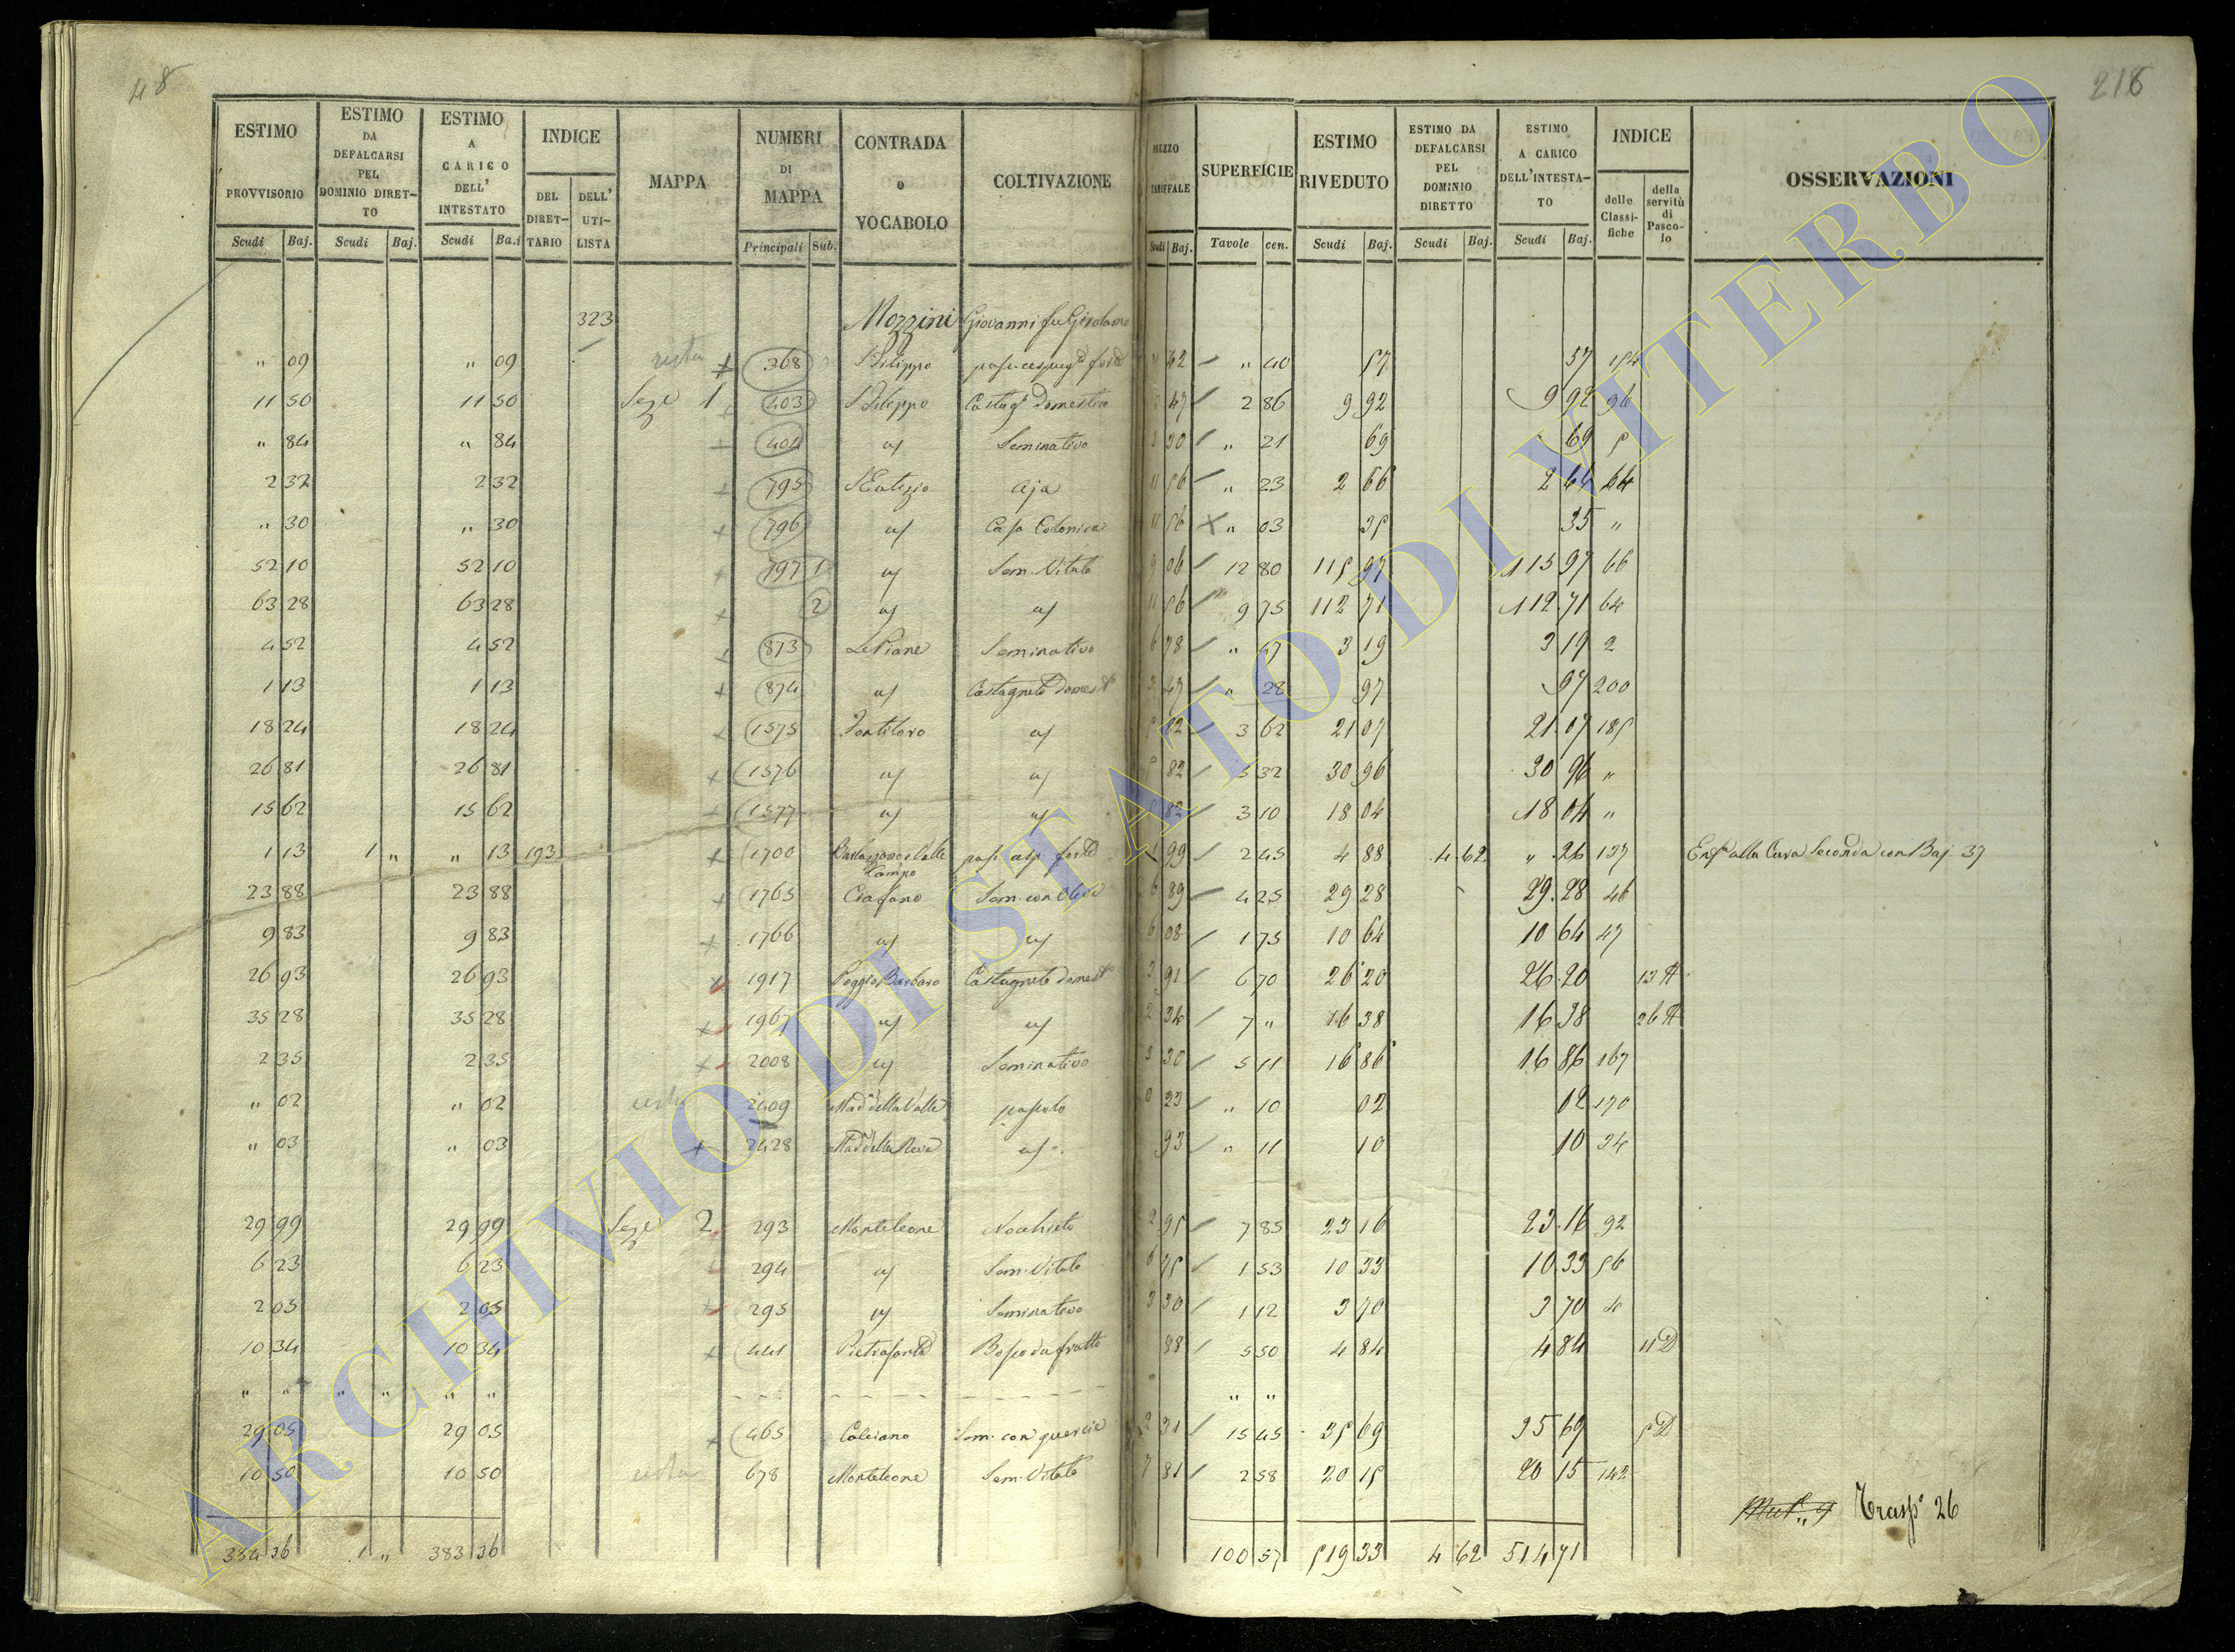 48
218
ESTIMO PROVVISORIO
ESTIMO DA DEFALCARSI PEL DOMINIO DIRETTO
ESTIMO A CARICO DELL' INTESTATO
INDICE
DEL DIRETTARIO
DELL' UTILISTA
MAPPA
NUMERI DI MAPPA
CONTRADA o VOCABOLO
COLTIVAZIONE
TARIFFALE
SUPERFICIE
ESTIMO RIVEDUTO
ESTIMO DA DEFALCARSI PEL DOMINIO DIRETTO
ESTIMO A CARICO DELL'INTESTATO
INDICE
delle Classifiche
della servitù di Pascolo
OSSERVAZIONI
Scudi Baj. Scudi Baj. Scudi Ba.i Principali Sub. Scudi Baj. Tavole cen. Scudi Baj. Scudi Baj. Scudi Baj.
323 Mozzini Giovanni fu Girolamo
" 09 " 09 resta 368 S Filippo 42 " 40 57 57 154
11 50 11 50 Seze 1 403 S Filippo Castag° Domestico 47 2 86 9 92 9 92 96
" 84 " 84 404 Seminativo 3 30 " 21 69 69 5
2 32 2 32 795 S Eutizio Aja 11 56 " 23 2 66 2 64 64
" 30 " 30 796 Casa Colonica 11 56 " 03 35 35 "
52 10 52 10 797 1 Sem. Vitato 9 06 12 80 115 97 115 97 66
63 28 63 28 2 11 56 9 75 112 71 112 71 64
4 52 4 52 873 Le Piane Seminativo 6 78 " 47 3 19 3 19 2
1 13 1 13 874 Castagneto Domest° 3 47 " 28 97 97 200
18 24 18 24 1575 5 82 3 62 21 07 21 07 185
26 81 26 81 1576 5 82 5 32 30 96 30 96 "
15 62 15 62 1577 5 82 3 10 18 04 18 04 "
1 13 1 " " 13 193 1700 1 99 2 45 4 88 4 62 " 26 137 Enf° alla Cura Seconda con Baj. 37
23 88 23 88 1765 Ciafano Sem. con Olivi 6 89 4 25 29 28 29 28 46
9 83 9 83 1766 6 08 1 75 10 64 10 64 47
26 93 26 93 1917 Poggio Barbaro Castagneto Domest° 3 91 6 70 26 20 26 20 13 A
35 28 35 28 1967 2 34 7 " 16 38 16 38 26 A
2 35 2 35 2008 Seminativo 3 30 5 11 16 86 16 86 167
" 02 " 02 resta 2409 Mad° della Valle pascolo 0 23 " 10 02 02 170
" 03 " 03 2428 Mad° della Neve 93 " 11 10 10 34
29 99 29 99 Seze 2 293 Monteleone 2 95 7 85 23 16 23 16 92
6 23 6 23 294 Sem. Vitato 6 75 1 53 10 33 10 33 56
2 05 2 05 295 Seminativo 3 30 1 12 3 70 3 70 4
10 34 10 34 441 Bosco da frutto 88 5 50 4 84 4 84 11 D
" " " " " " " "
29 05 29 05 465 Calciano Sem. con quercie 2 31 15 45 35 69 35 69 5 D
10 50 10 50 resta 678 Monteleone Sem. Vitato 7 81 2 58 20 15 20 15 142
Mut° 9 Trasp° 26
384 36 1 " 383 36 100 57 519 33 4 62 514 71
ARCHIVIO DI STATO DI VITERBO